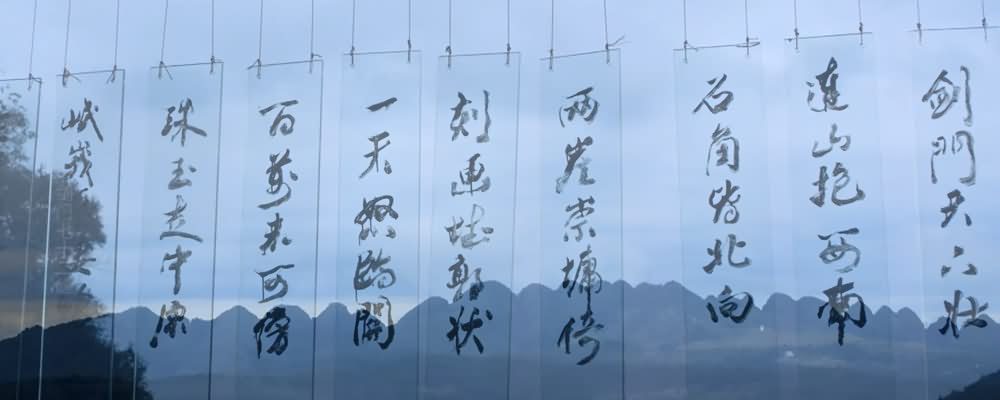 劍門天下壮
連山抱西南
石角皆北向
两崖崇墉倚
刻画城郭状
一夫怒臨關
百萬未可傍
珠玉走中原
岷峨